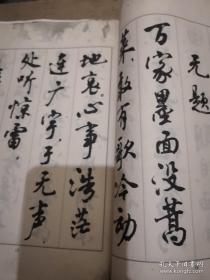 无题
百家墨面没蒿
莱敢有歌吟动
地哀心事浩茫
连广宇于无声
处听惊雷